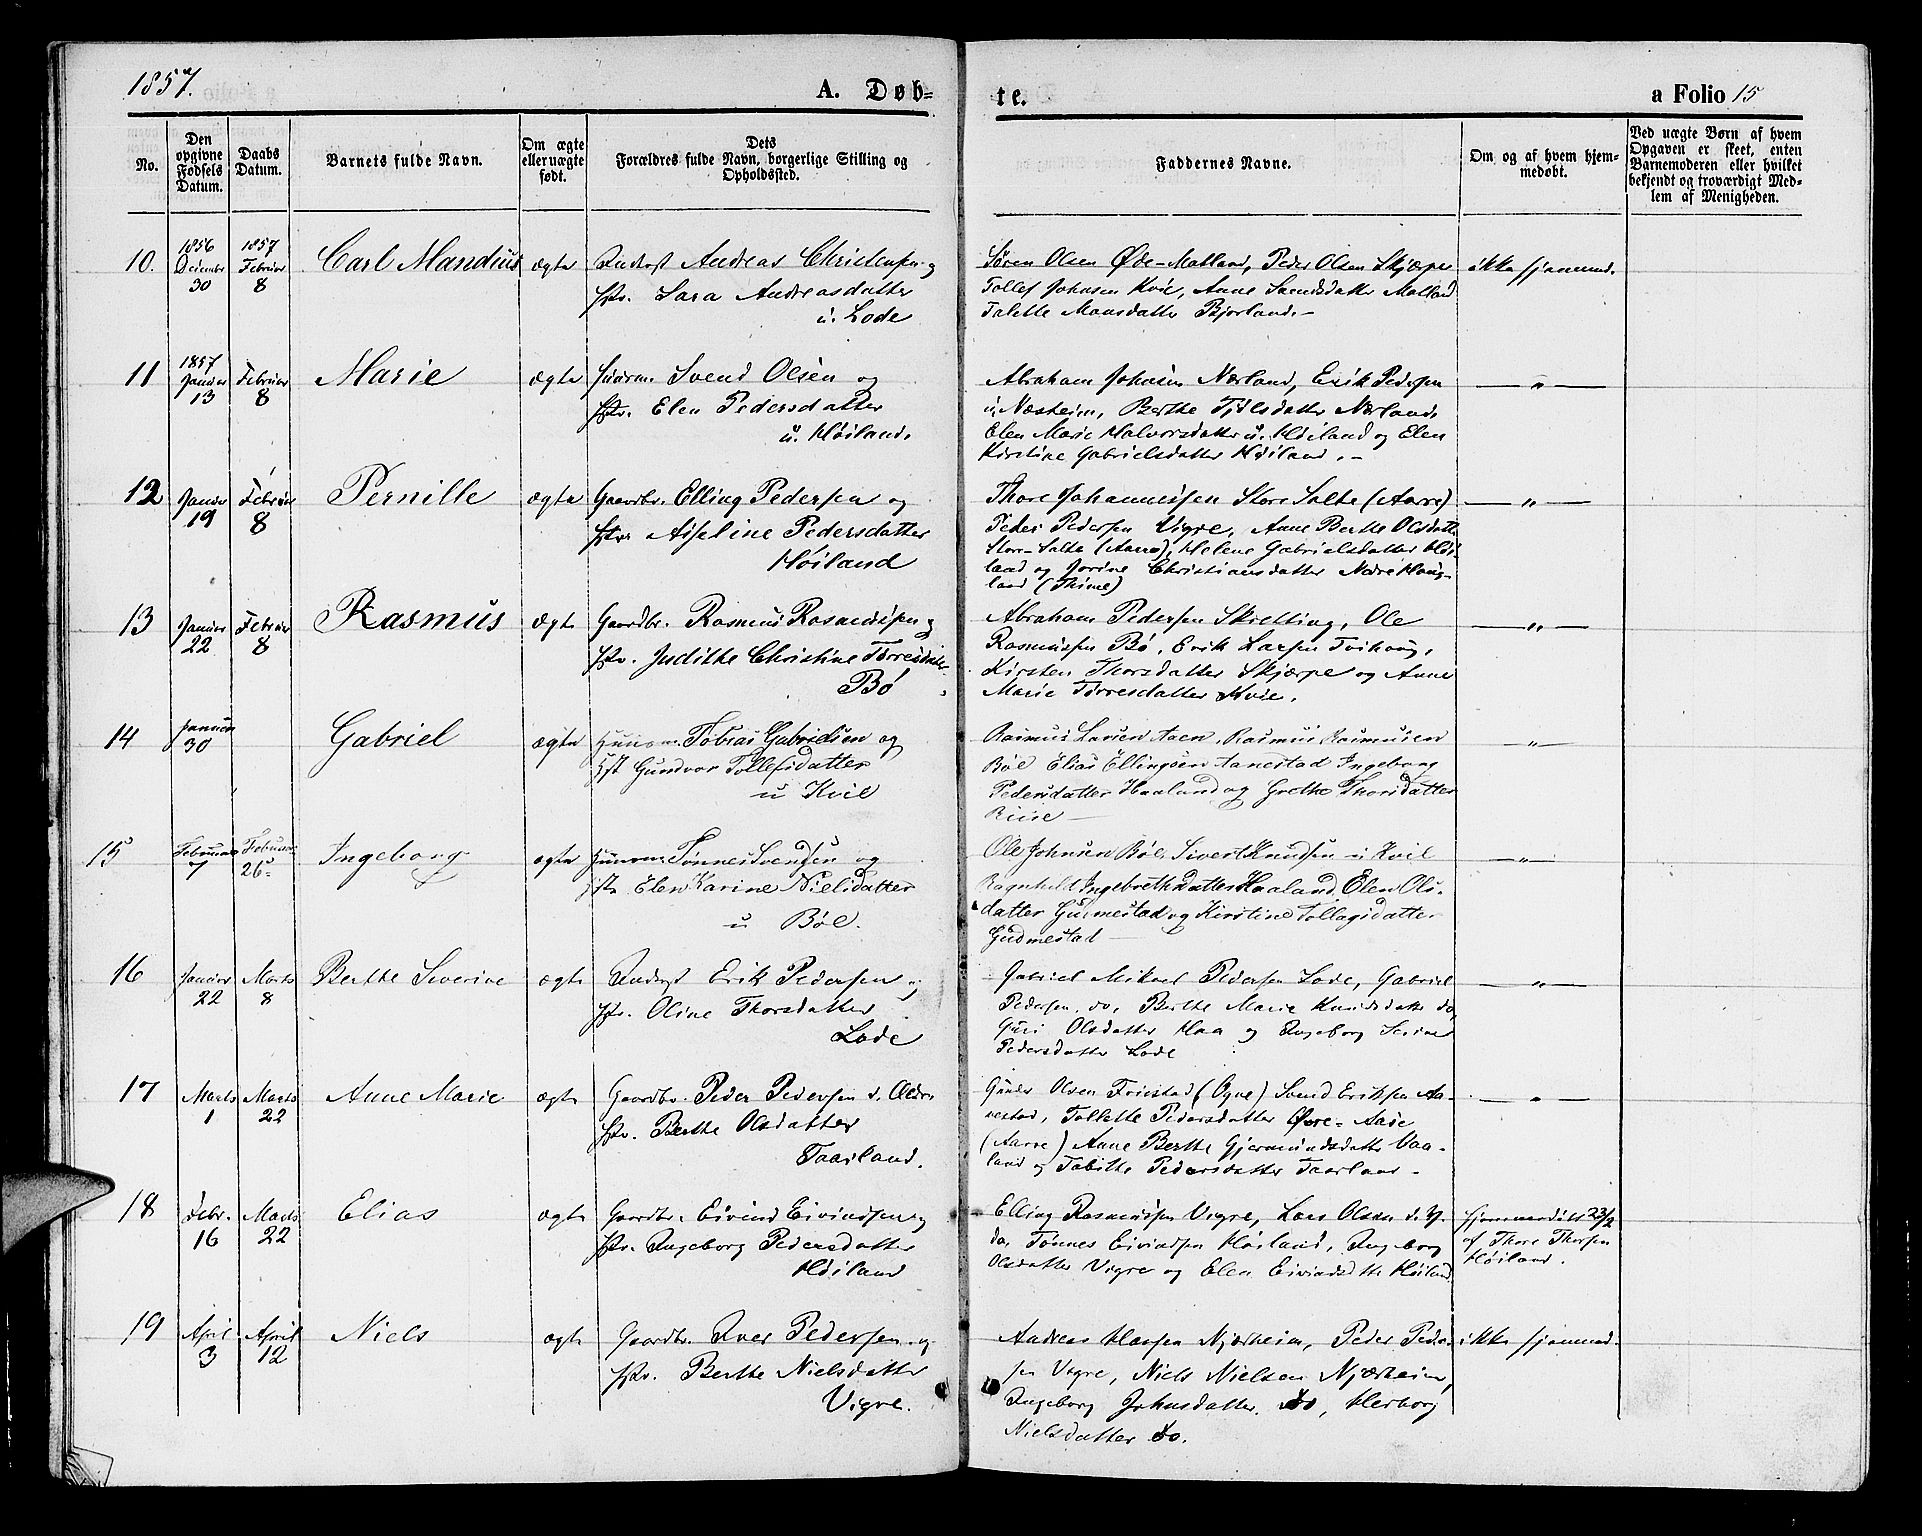 1857.
A. Døb-
te.
a Folio 15
No.
Den opgivne Fødsels Datum.
Daabs Datum.
Barnets fulde Navn.
Om ægte eller uægte født.
Dets Forældres fulde Navn, borgerlige Stilling og Opholdssted.
Faddernes Navne.
Om og af hvem hjem-
medøbt.
Ved uægte Børn af hvem
Opgaven er skeet, enten
Barnemoderen eller hvilket
bekjendt og troværdigt Med-
lem af Menigheden.
10. 1856 Decembr 30 1857 Februar 8 Carl Mandius ægte Andreas Christensen og
Hstr. Sara Andreasdatter
u. Lode
Søren Olsen Øde-Matland, Peder Olsen Skjærpe
Tollef Johnsen Kvie, Anne Svendsdatter Matland
Talette Monsdatter Bjorland.-
ikke hjemmed.
11 1857 Januar 13 Februar 8 Marie ægte Huusm. Svend Olsen og
Hstr. Elen Pedersdatter
u. Høiland.
Abraham Johnsen Nærland, Erik Pedersen
u. Næsheim, Berthe Nærland,
Elen Marie Halvorsdatter u. Høiland og Elen
Kirstine Gabrielsdatter Høiland.-
— " —
12 Januar 19 Februar 8 Pernille ægte Gaardbr. Elling Pedersen og
Hstr. Aiseline Pedersdatter
Høiland
Thore Johannessen Store Salte (Aarre)
Peder Pedersen Vigre, Anne Berthe Olsdatter
Store-Salte (Aarre), Helene Gabrielsdatter Høi-
land og Jorine Christiansdatter Nedre Haug-
land (Thime)
— " —
13 Januar 22 Februar 8 Rasmus ægte Gaardbr. Rasmus Rasmussen og
Hstr. Judithe Christine Tørresdatter
Bø
Abraham Pedersen Skretting, Ole
Rasmussen Bø, Erik Larsen Tvihoug,
Kirsten Thorsdatter Skjærpe og Anne
Marie Tørresdatter Kvie.
— " —
14 Januar 30 Gabriel ægte Huusm. Tobias Gabrielsen og
Hst Gundvor Tollefsdatter
u Kvie
Rasmus Larsen Aaen, Rasmus Rasmusen
Bøe Elias Ellingsen Aanestad Ingeborg
Pedersdatter Haaland og Grethe Thorsdatter
Riise —
— " —
15 Februar 7 Februar 26 Ingeborg ægte Huusm Tønnes Svendsen og
Hstr Elen Karine Nielsdatter
u Bøe.
Ole Johnsen Bøe, Sivert Knudsen u Kvie
Ragnhild Ingebrethsdatter Haaland, Elen Ols-
datter Gudmestad og Kirstine Tollagsdatter
Gudmestad —
— " —
16 Januar 22 Marts 8 Berthe Severine ægte Erik Pedersen og
Hstr. Oline Thorsdatter
Lode
Gabriel Mikael Pedersen Lode, Gabriel
Pedersen, do, Berthe Marie Knudsdatter do,
Guri Olsdatter Haa og Ingeborg Serine
Pedersdatter Lode
— " —
17 Marts 1 Marts 22 Anne Marie ægte Gaardbr. Peder Pedersen d. Ældre
Hstr. Berthe Olsdatter
Taarland.
Gunder Olsen Friestad (Ogne) Svend Eriksen Aa-
nestad, Tollette Pedersdatter Øvre-Aase
(Aarre) Anne Berthe Gjermundsdatter Vaa-
land og Tabitha Pedersdatter Taarland -
— " —
18 Febr. 16 Marts 22 Elias ægte Gaardbr. Eivind Eivindsen og
Hstr. Ingeborg Pedersdatter
Høiland
Elling Rasmussen Vigre, Lars Olsen d. Y.
do, Tønnes Eivindsen Høiland, Ingeborg
Olsdatter Vigre og Elen Eivindsdtt Høiland.
Hjemmedøbt 23/2
af Thore Thorsen
Høiland.
19 April 3 April 12 Niels ægte Gaardbr. Iver Pedersen og
Hstr. Berthe Nielsdatter
Vigre.
Andreas Hansen Njærheim, Peder Peder-
sen Vigre, Niels Nielsen Njærheim,
Ingeborg Johnsdatter do, Herborg
Nielsdatter do.
ikke hjemmed.